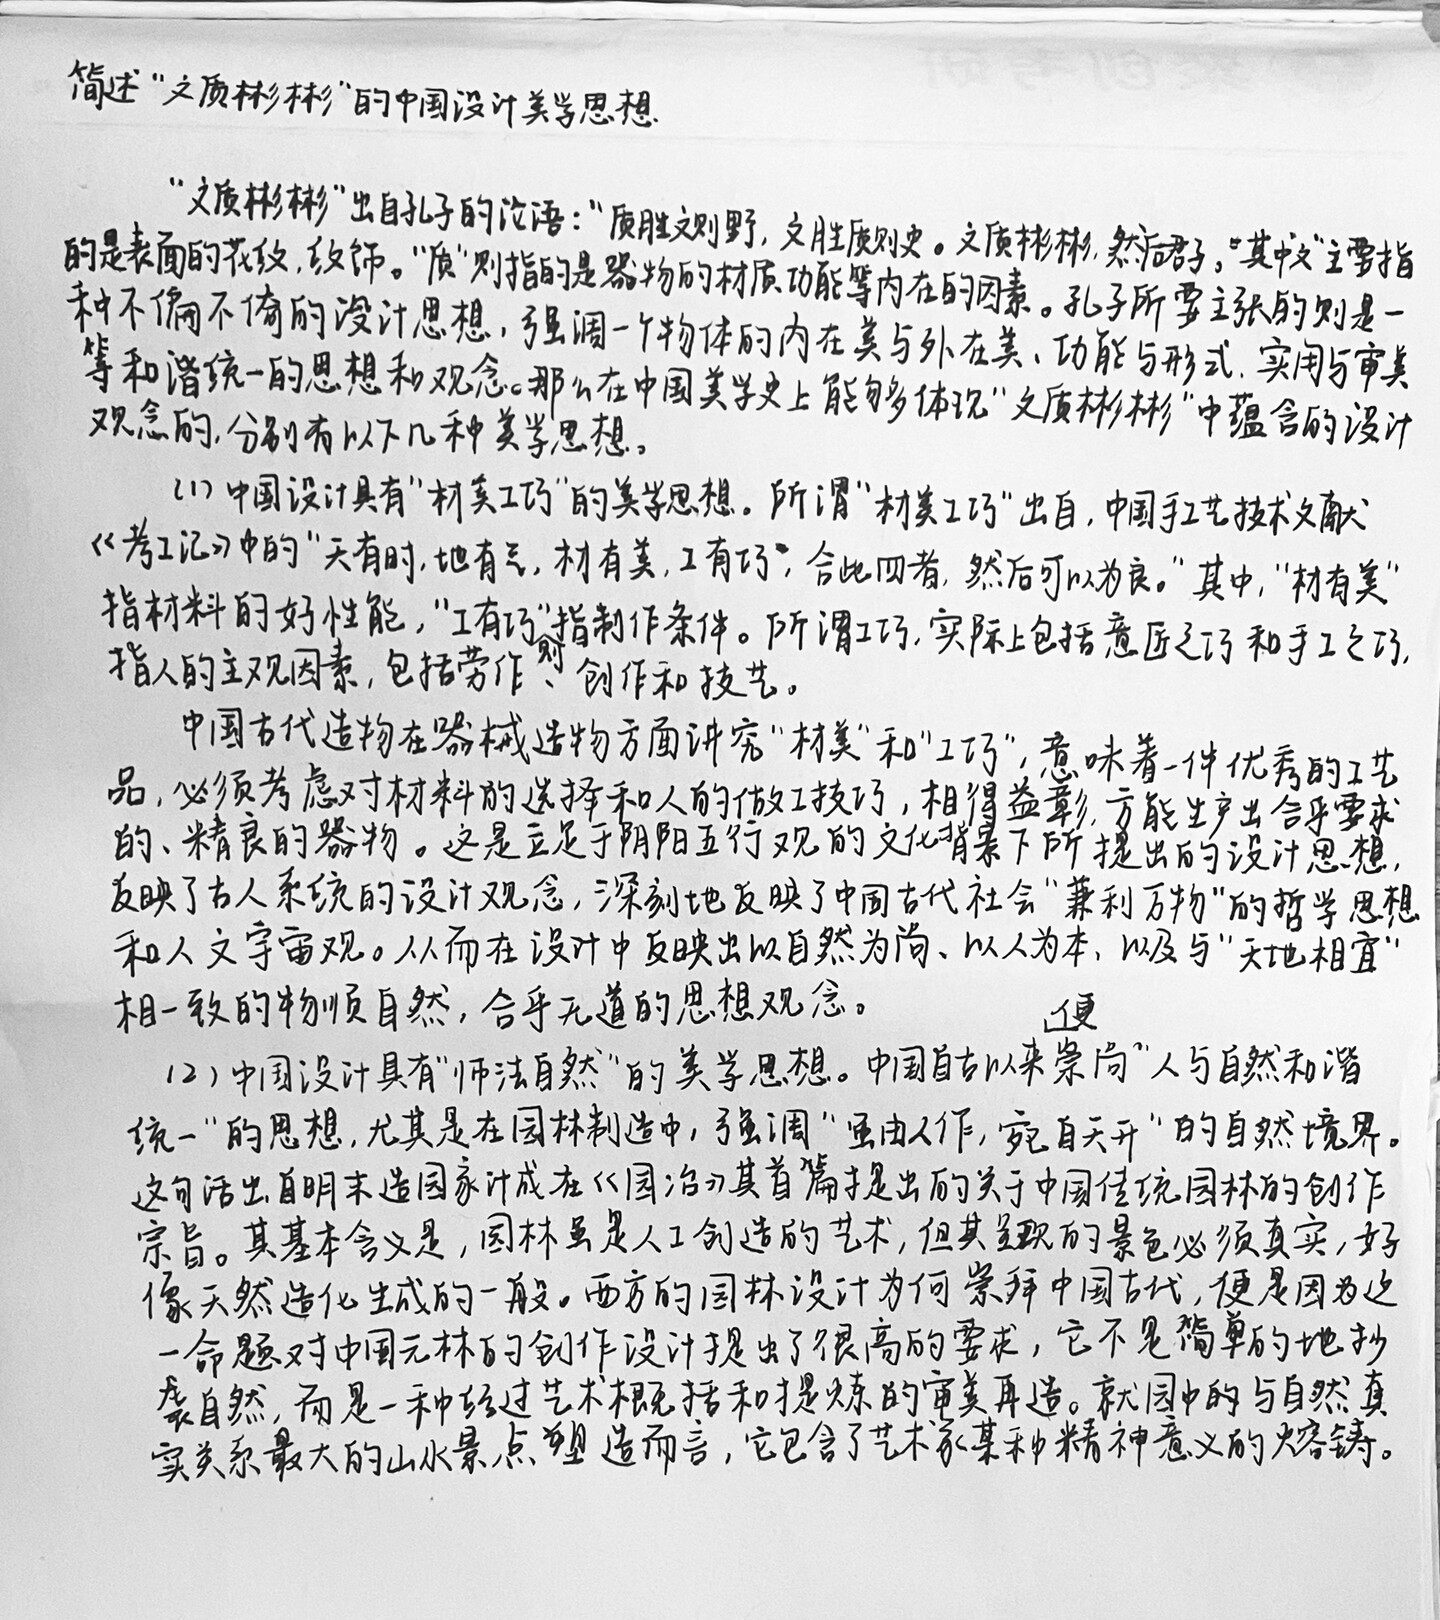 简述“文质彬彬”的中国设计美学思想
“文质彬彬”出自孔子的论语：“质胜文则野，文胜质则史。文质彬彬，然后君子。”其中“文”主要指
的是表面的花纹，纹饰。“质”则指的是器物的材质功能等内在的因素。孔子所要主张的则是一
种不偏不倚的设计思想，强调一个物体的内在美与外在美、功能与形式、实用与审美
等和谐统一的思想和观念。那么在中国美学史上能够多体现“文质彬彬”中蕴含的设计
观念的，分别有以下几种美学思想。
（1）中国设计具有“材美工巧”的美学思想。所谓“材美工巧”出自，中国手工艺技术文献
《考工记》中的“天有时，地有气，材有美，工有巧，合此四者，然后可以为良。”其中，“材有美”
指材料的好性能，“工有巧”则指制作条件。所谓工巧，实际上包括意匠之巧和手工之巧，
指人的主观因素，包括劳作、创作和技艺。
中国古代造物在器械造物方面讲究“材美”和“工巧”，意味着一件优秀的工艺
品，必须考虑对材料的选择和人的做工技巧，相得益彰，方能生产出合乎要求
的、精良的器物。这是立足于阴阳五行观的文化背景下所提出的设计思想，
反映了古人系统的设计观念，深刻地反映了中国古代社会“兼利万物”的哲学思想
和人文宇宙观。从而在设计中反映出以自然为尚、以人为本、以及与“天地相宜”
相一致的物顺自然，合乎天道的思想观念。
（2）中国设计具有“师法自然”的美学思想。中国自古以来便崇尚“人与自然和谐
统一”的思想，尤其是在园林制造中，强调“虽由人作，宛自天开”的自然境界。
这句话出自明末造园家计成在《园冶》其首篇提出的关于中国传统园林的创作
宗旨。其基本含义是，园林虽是人工创造的艺术，但其呈现的景色必须真实，好
像天然造化生成的一般。西方的园林设计为何崇拜中国古代，便是因为这
一命题对中国元林的创作设计提出了很高的要求，它不是简单的地抄
袭自然，而是一种经过艺术概括和提炼的审美再造。就园中的与自然真
实关系最大的山水景点塑造而言，它包含了艺术家某种精神意义的熔铸。